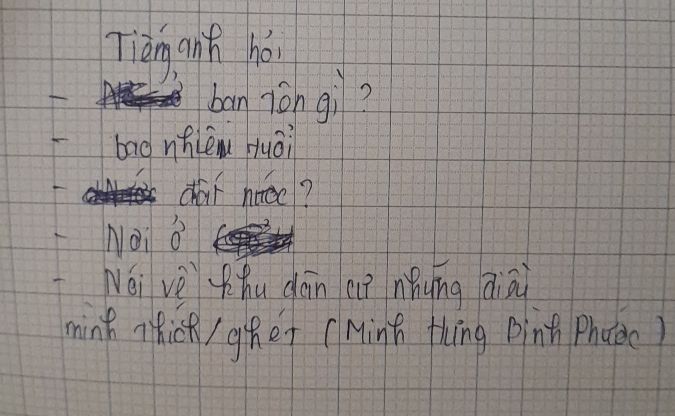 Tiếng anh hỏi
- bạn tên gì ?
- bao nhiêu tuổi
- đất nước ?
- Nơi ở
- Nói về khu dân cư những điều
mình thích / ghét ( Minh Hưng Bình Phước )